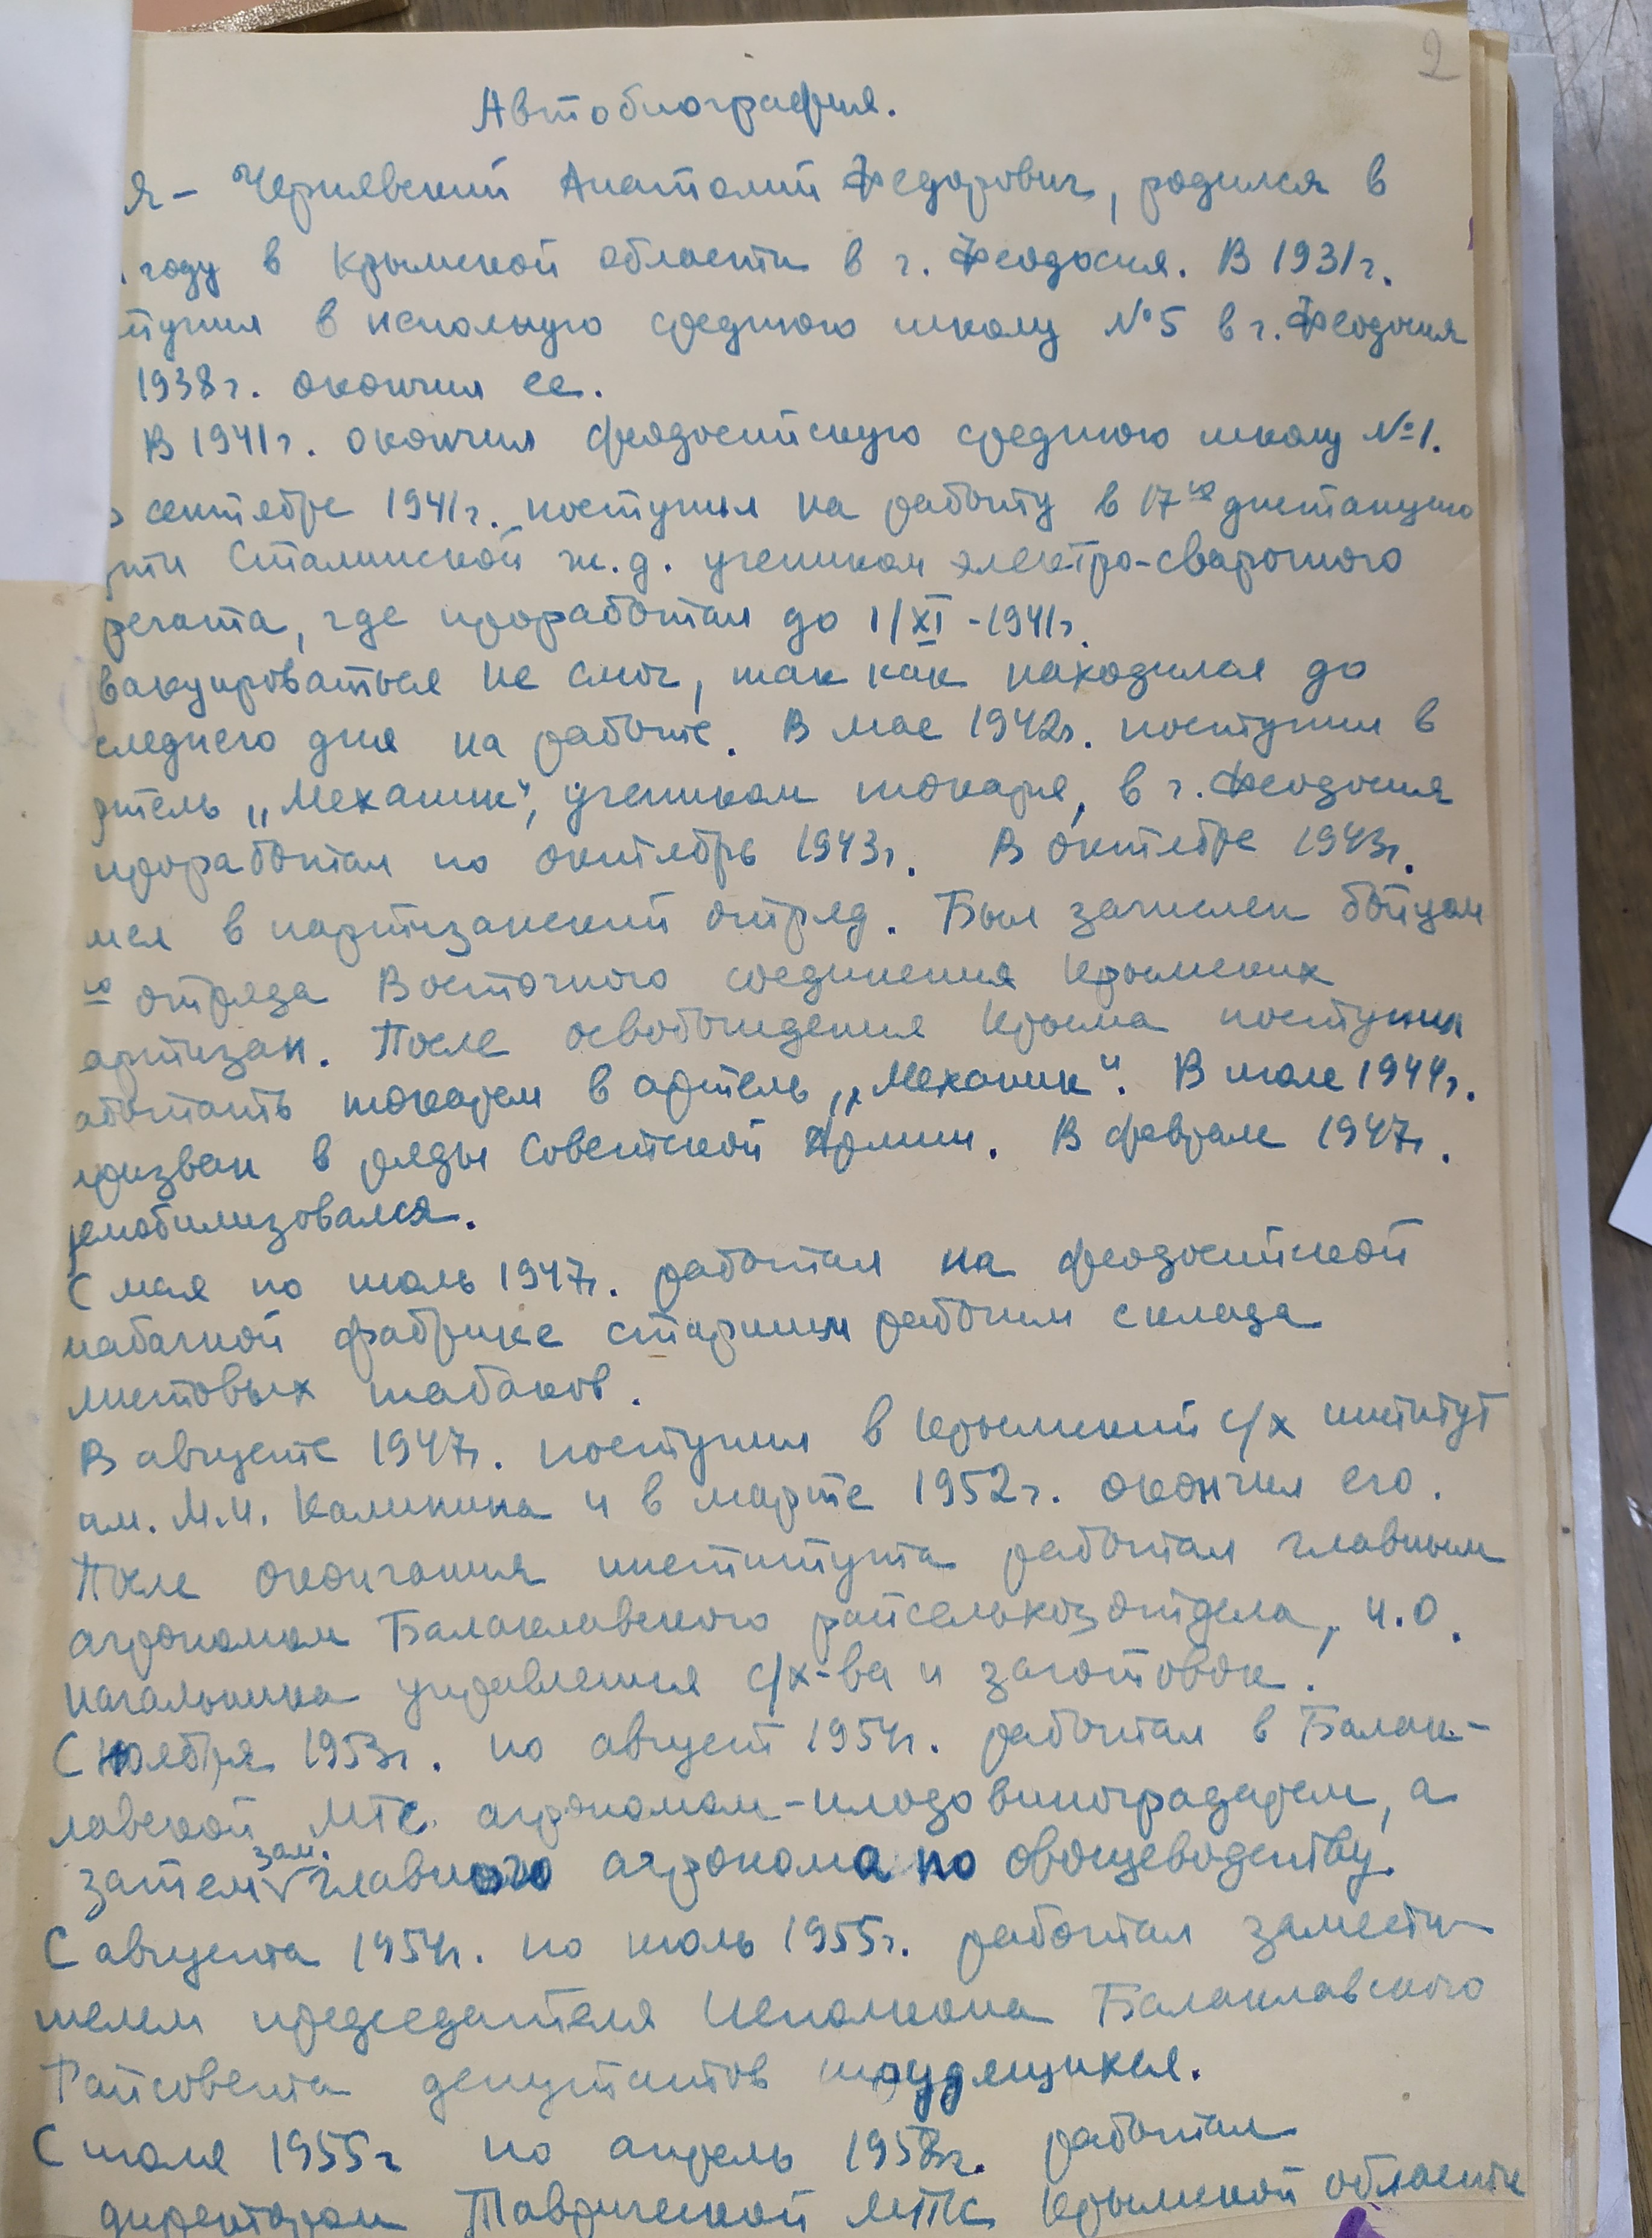 2
Автобиография.
Я – Чернявский Анатолий Федорович, родился в
году в Крымской области в г. Феодосия. В 1931 г.
тупил в неполную среднюю школу №5 в г. Феодосия
1938 г. окончил ее.
В 1941 г. окончил феодосийскую среднюю школу №1.
сентябре 1941 г. поступил на работу в 17ю дистанцию
ути Сталинской ж.д. учеником электро-сварочного
регата, где проработал до 1/XI - 1941 г.
вакуироваться не смог, так как находился до
следнего дня на работе. В мае 1942 г. поступил в
ртель „Механик", учеником токаря, в г. Феодосия
проработал по октябрь 1943 г. В октябре 1943 г.
шел в партизанский отряд. Был зачислен бойцом
го отряда Восточного соединения Крымских
артизан. После освобождения Крыма поступил
аботать токарем в артель „Механик". В июле 1944 г.
призван в ряды Советской Армии. В феврале 1947 г.
демобилизовался.
С мая по июль 1947 г. работал на феодосийской
табачной фабрике старшим рабочим склада
листовых табаков.
В августе 1947 г. поступил в Крымский с/х институт
им. М.И. Калинина и в марте 1952 г. окончил его.
После окончания института работал главным
агрономом Балаклавского райсельхозотдела, и.о.
начальника управления с/х-ва и заготовок.
С ноября 1953 г. по август 1954 г. работал в Балак-
лавской МТС агрономом-плодовиноградарем, а
затем зам. главного агронома по овощеводству.
С августа 1954 г. по июль 1955 г. работал замести-
телем председателя Исполкома Балаклавского
Райсовета депутатов трудящихся.
С июля 1955 г по апрель 1958 г. работал
директором Таврической МТС Крымской области